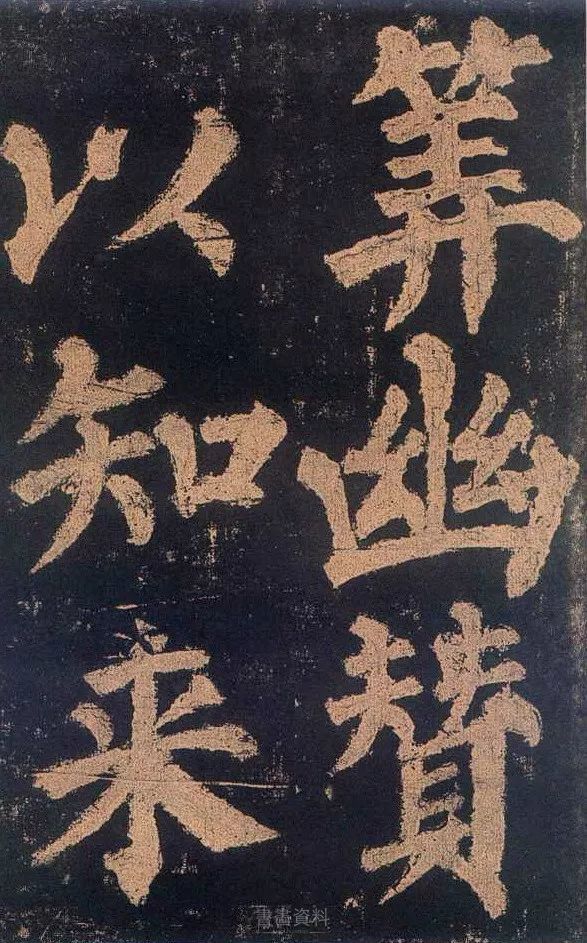 筭幽賛
以知来
書畫資料